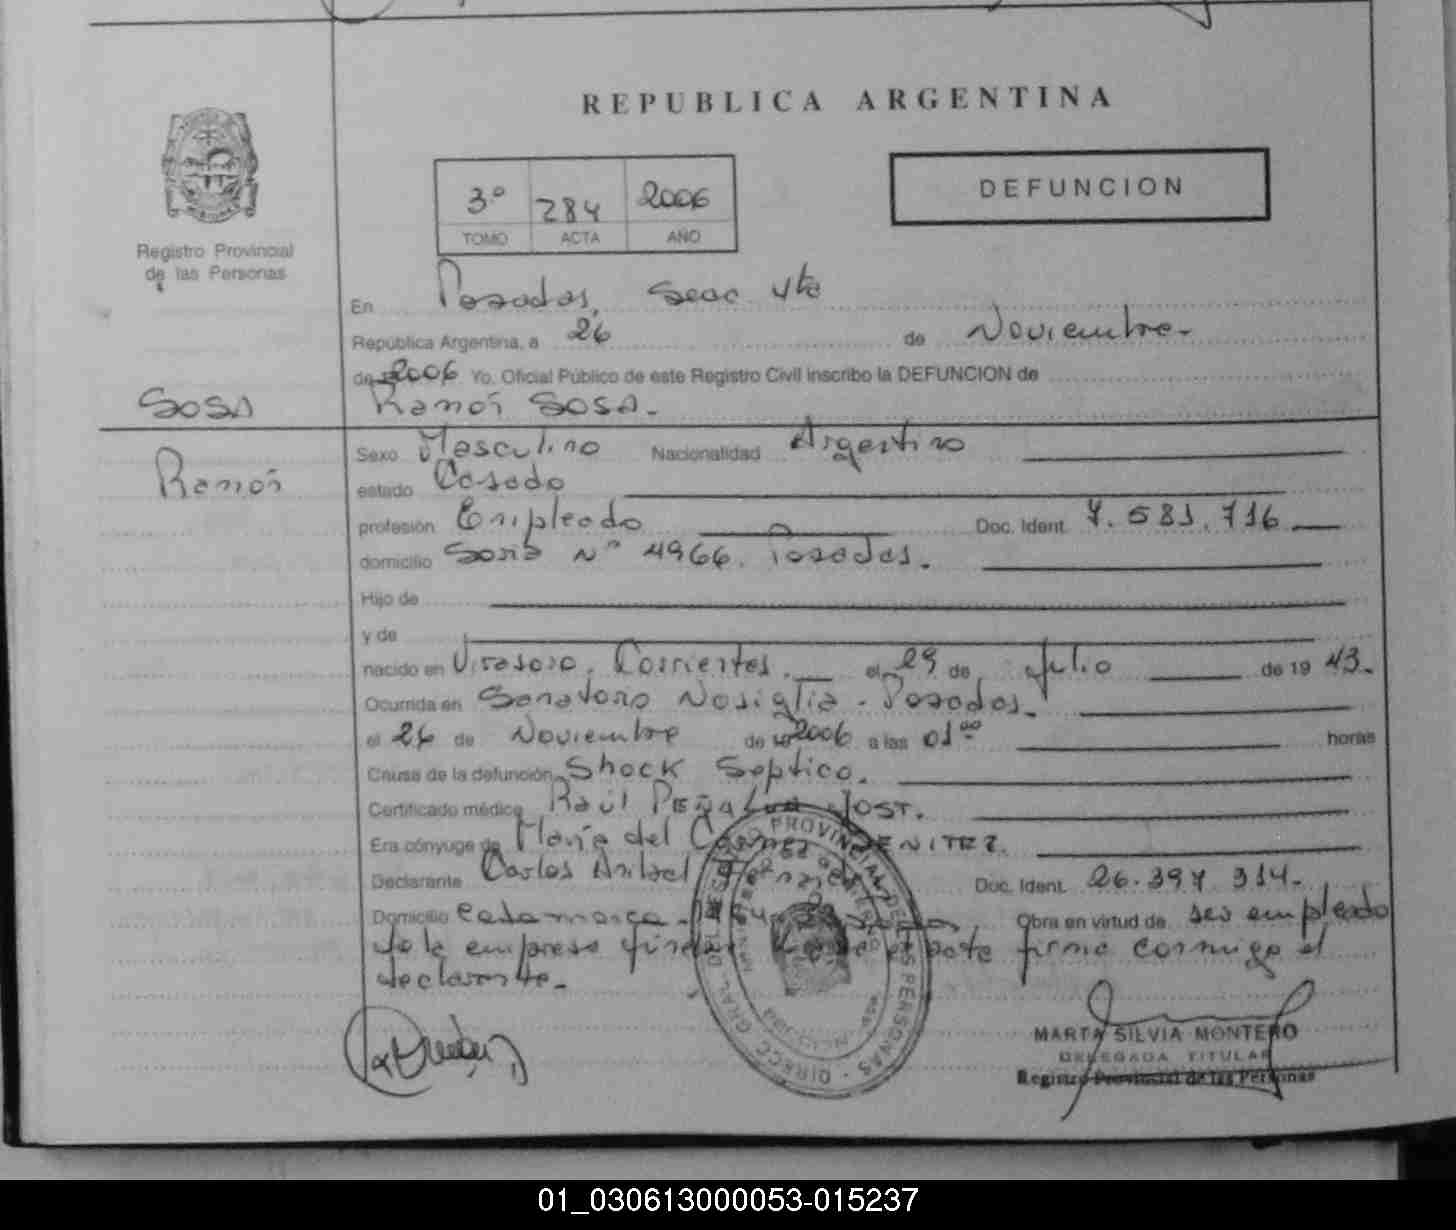 REPUBLICA ARGENTINA
DEFUNCION
3º 284 2006
TOMO ACTA AÑO
Registro Provincial
de las Personas
En Posadas, Secc 4ta
República Argentina, a 26 de Noviembre-
de 2006 Yo, Oficial Público de este Registro Civil inscribo la DEFUNCION de
SOSA
Ramón SOSA.
Ramón
Sexo Masculino Nacionalidad Argentino
estado Casado
profesión Empleado Doc. Ident. 7.581.716
domicilio Soria Nº 4966. Posadas.
Hijo de
y de
nacido en Virasoro, Corrientes. el 29 de Julio de 19 43.
Ocurrida en Sanatorio Nosiglia - Posadas.
el 26 de Noviembre de 2006 a las 01⁰⁰ horas
Causa de la defunción Shock Septico.
Certificado médico Raúl PEÑA JOST.
Era cónyuge de María del Carmen BENITEZ.
Declarante Carlos Anibal Doc. Ident. 26.397.314-
Domicilio Catamarca Obra en virtud de ser empleado
de la empresa firma conmigo el
declarante.
REGISTRO PROVINCIAL DE LAS PERSONAS - DIRECC. GRAL. DEL
MARTA SILVIA MONTERO
DELEGADA TITULAR
Registro Provincial de las Personas
01_030613000053-015237